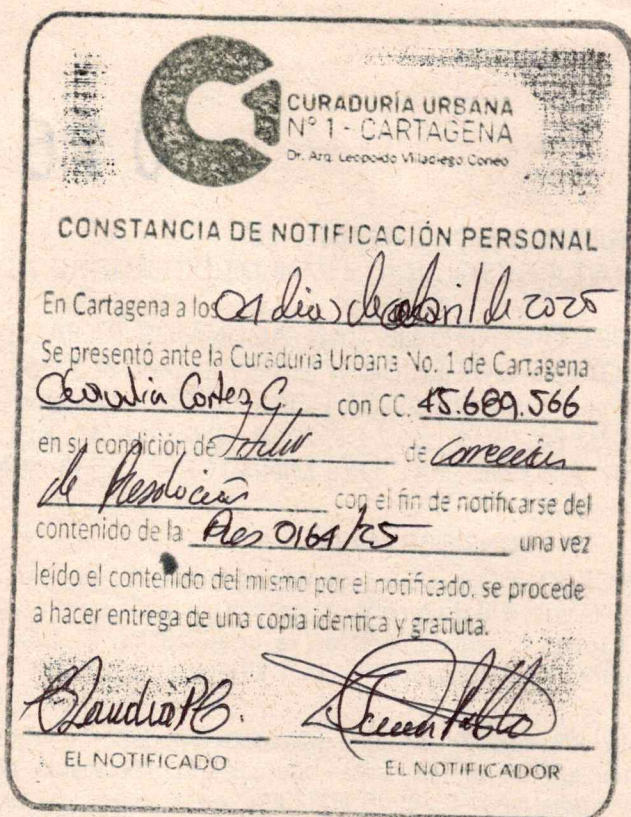 CURADURÍA URBANA
N° 1 - CARTAGENA
Dr. Arq. Leopoldo Villadiego Coneo
CONSTANCIA DE NOTIFICACIÓN PERSONAL
En Cartagena a los 01 dias de abril de 2025
Se presentó ante la Curaduría Urbana No. 1 de Cartagena
Claudia Cortez C. con CC. 45.689.566
en su condición de titular de correccion
de Resolución con el fin de notificarse del
contenido de la Res 0164/25 una vez
leído el contenido del mismo por el notificado, se procede
a hacer entrega de una copia identica y gratiuta.
Claudia P C.
EL NOTIFICADO
EL NOTIFICADOR